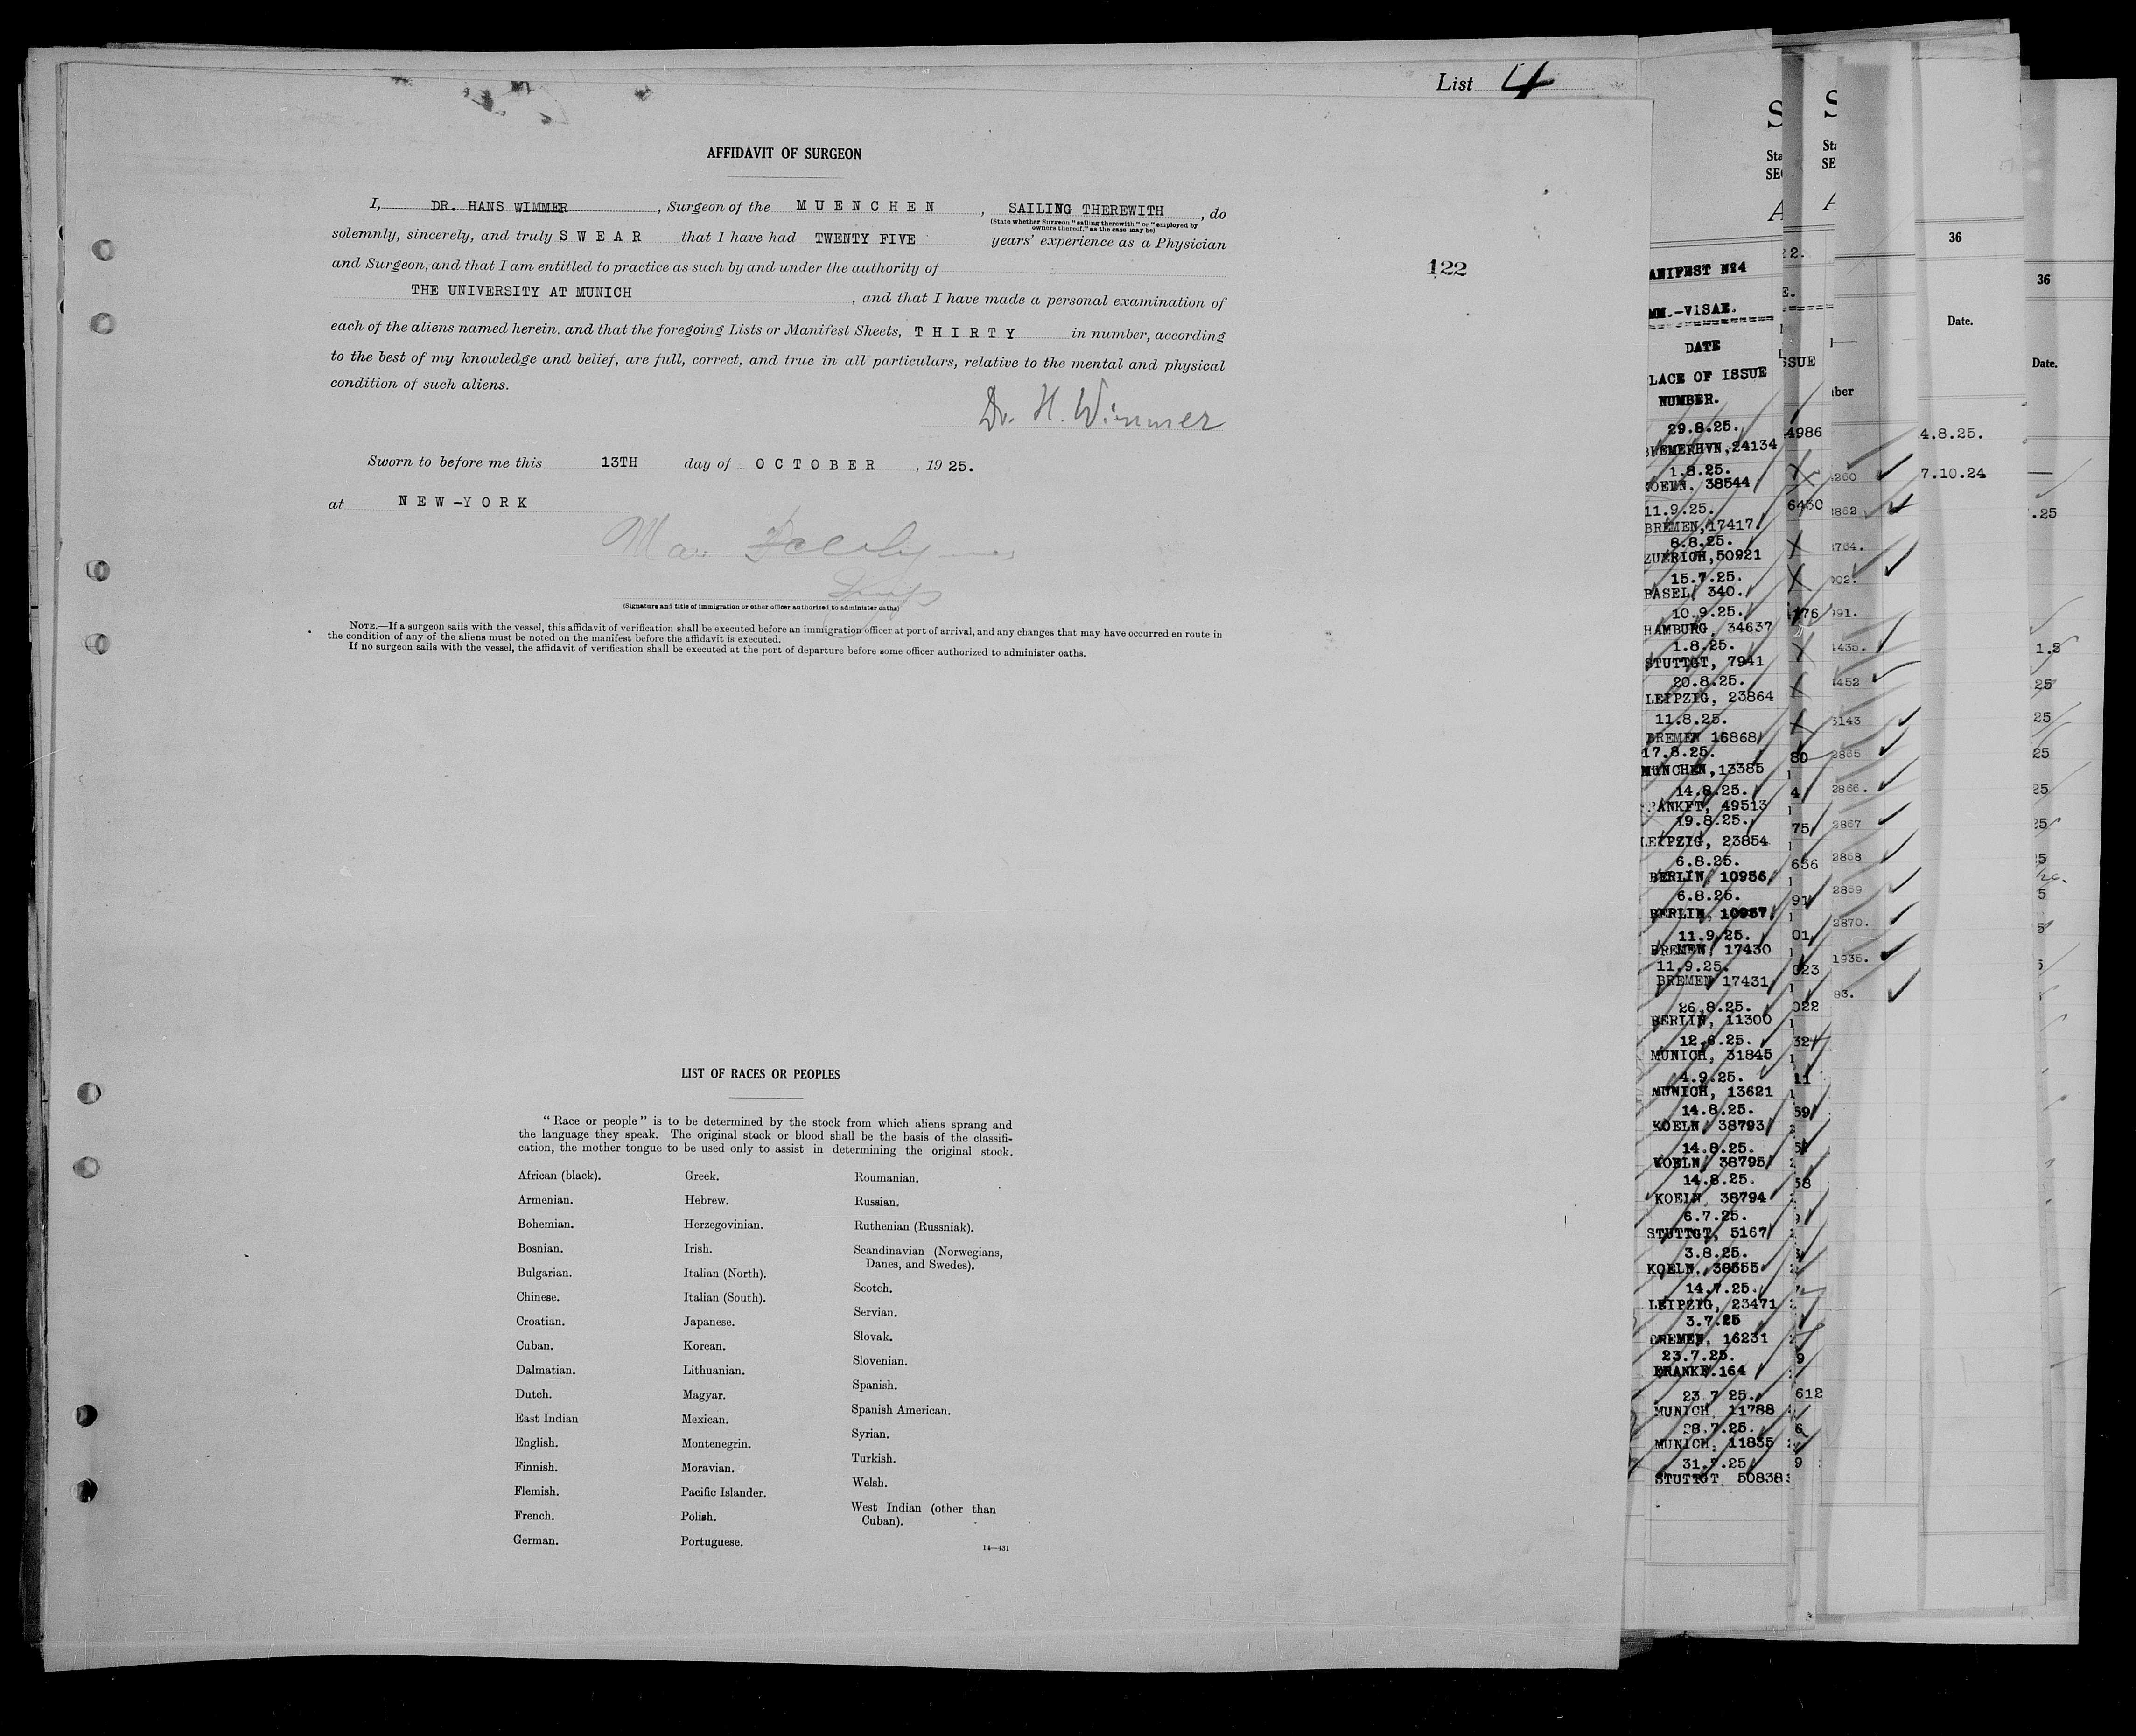 List 4
AFFIDAVIT OF SURGEON
I, DR. HANS WIMMER, Surgeon of the MUENCHEN, SAILING THEREWITH, do
(State whether Surgeon "sailing therewith" or "employed by
owners thereof," as the case may be)
solemnly, sincerely, and truly SWEAR that I have had TWENTY FIVE years' experience as a Physician
and Surgeon, and that I am entitled to practice as such by and under the authority of
THE UNIVERSITY AT MUNICH, and that I have made a personal examination of
each of the aliens named herein. and that the foregoing Lists or Manifest Sheets, THIRTY in number, according
to the best of my knowledge and belief, are full, correct, and true in all particulars, relative to the mental and physical
condition of such aliens.
Dr. H. Wimmer
Sworn to before me this 13TH day of OCTOBER, 1925.
at NEW-YORK
(Signature and title of immigration or other officer authorized to administer oaths)
NOTE.—If a surgeon sails with the vessel, this affidavit of verification shall be executed before an immigration officer at port of arrival, and any changes that may have occurred en route in
the condition of any of the aliens must be noted on the manifest before the affidavit is executed.
If no surgeon sails with the vessel, the affidavit of verification shall be executed at the port of departure before some officer authorized to administer oaths.
122
LIST OF RACES OR PEOPLES
"Race or people" is to be determined by the stock from which aliens sprang and
the language they speak. The original stock or blood shall be the basis of the classifi-
cation, the mother tongue to be used only to assist in determining the original stock.
African (black).
Armenian.
Bohemian.
Bosnian.
Bulgarian.
Chinese.
Croatian.
Cuban.
Dalmatian.
Dutch.
East Indian
English.
Finnish.
Flemish.
French.
German.
Greek.
Hebrew.
Herzegovinian.
Irish.
Italian (North).
Italian (South).
Japanese.
Korean.
Lithuanian.
Magyar.
Mexican.
Montenegrin.
Moravian.
Pacific Islander.
Polish.
Portuguese.
Roumanian.
Russian.
Ruthenian (Russniak).
Scandinavian (Norwegians,
Danes, and Swedes).
Scotch.
Servian.
Slovak.
Slovenian.
Spanish.
Spanish American.
Syrian.
Turkish.
Welsh.
West Indian (other than
Cuban).
14—431
ANIFEST №4
MM.-VISAE.
DATE
LACE OF ISSUE
NUMBER.
29.8.25.
BREMERHVN,24134
1.8.25.
KOELN. 38544
11.9.25.
BREMEN,17417
8.8.25.
ZUERICH,50921
15.7.25.
BASEL, 340.
10.9.25.
HAMBURG, 34637
1.8.25.
STUTTGT, 7941
20.8.25.
LEIPZIG, 23864
11.8.25.
BREMEN 16868
17.8.25.
MUNCHEN,13385
14.8.25.
RANKFT, 49513
19.8.25.
LEIPZIG, 23854
6.8.25.
BERLIN, 10956
6.8.25.
BERLIN, 10957
11.9.25.
BREMEN, 17430
11.9.25.
BREMEN 17431
26.8.25.
BERLIN, 11300
12.6.25.
MUNICH, 31845
4.9.25.
MUNICH, 13621
14.8.25.
KOELN 38793
14.8.25.
KOELN, 38795
14.8.25.
KOELN 38794
6.7.25.
STUTTGT, 5167
3.8.25.
KOELN, 38555
14.7.25.
LEIPZIG, 23471
3.7.25
BREMEN, 16231
23.7.25.
FRANKF.164
23.7.25.
MUNICH, 11788
28.7.25.
MUNICH, 11835
31.7.25
STUTTGT 50838
SSUE
4986
6430
ber
36
Date.
4.8.25.
7.10.24
36
Date.